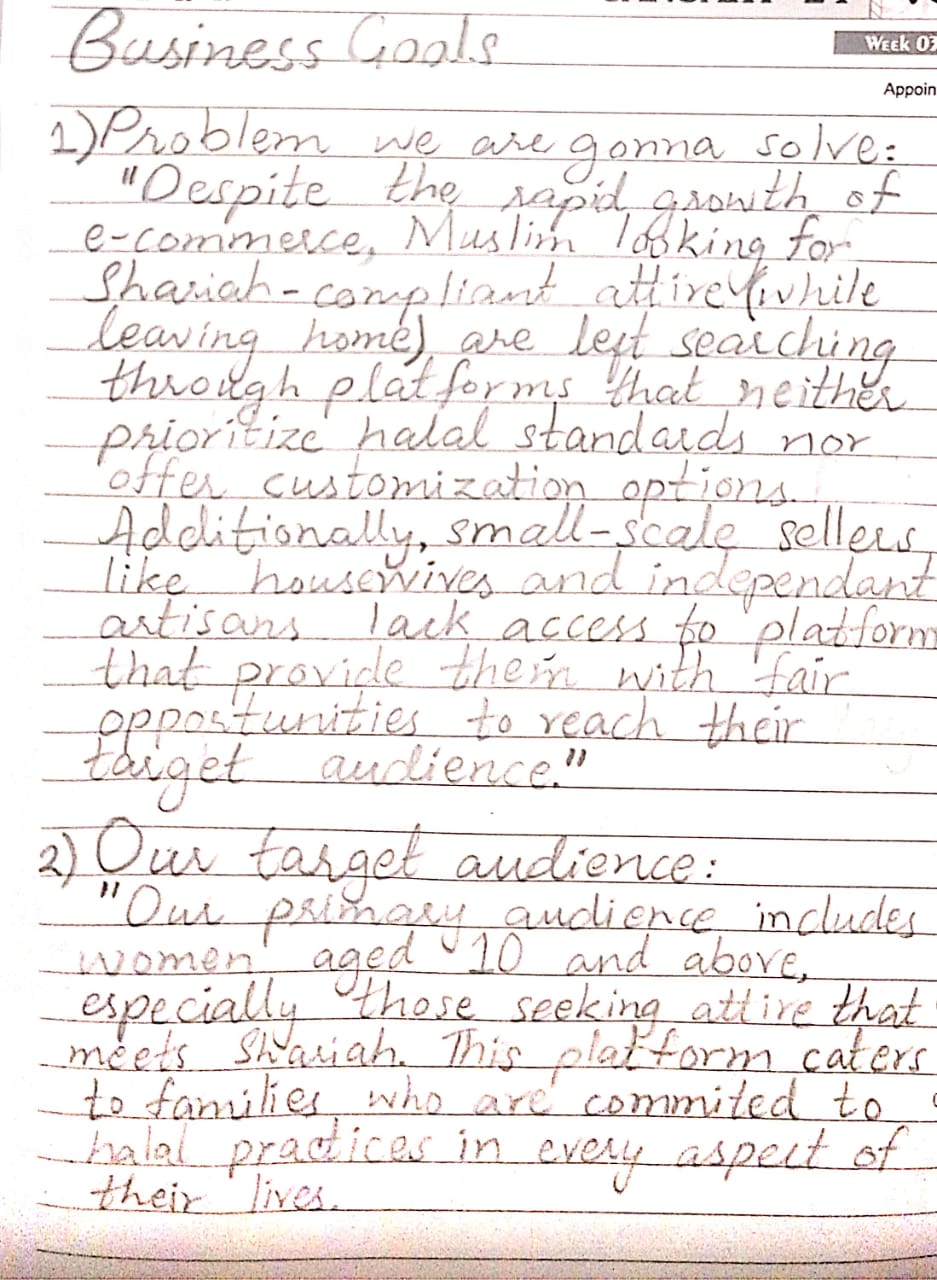 Business Goals
Week 03
Appoin
1) Problem we are gonna solve:
"Despite the rapid growth of
e-commerce, Muslim looking for
Shariah-compliant attire (while
leaving home) are left searching
through platforms that neither
prioritize halal standards nor
offer customization options.
Additionally, small-scale sellers
like housewives and independant
artisans lack access to platform
that provide them with fair
opportunities to reach their
target audience."
2) Our target audience:
"Our primary audience includes
women aged 10 and above,
especially those seeking attire that
meets Shariah. This platform caters
to families who are commited to
halal practices in every aspect of
their lives.